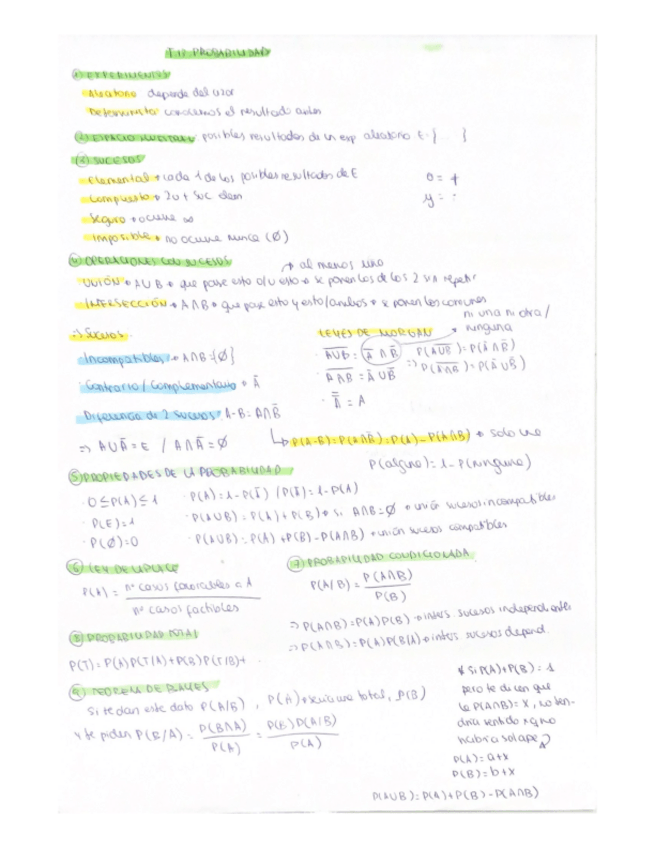 T.12 PROBABILIDAD
① EXPERIMENTOS
Aleatorio depende del azar
Determinista conocemos el resultado antes
② ESPACIO MUESTRAL posibles resultados de un exp aleatorio E={ }
③ SUCESOS
Elemental → cada 1 de los posibles resultados de E
o = +
Compuesto → 2 o + suc elem
y = ·
Seguro → ocurre ∞
Imposible → no ocurre nunca (∅)
④ OPERACIONES CON SUCESOS
→ al menos uno
UNIÓN → A∪B → que pase esto o/u esto → se ponen los de los 2 sin repetir
INTERSECCIÓN → A∩B → que pase esto y esto/ambos → se ponen los comunes
ni una ni otra /
ninguna
Sucesos
LEYES DE MORGAN
Incompatibles → A∩B={∅}
· A̅∪̅B̅ = A̅ ∩ B̅
P(A̅∪̅B̅) = P(A̅ ∩ B̅)
· Contrario / Complementario → A̅
· A̅∩̅B̅ = A̅ ∪ B̅
⇒ P(A̅∩̅B̅) = P(A̅ ∪ B̅)
Diferencia de 2 sucesos: A-B = A∩B̅
· A̿ = A
⇒ A∪A̅ = E / A∩A̅ = ∅
↳ P(A-B) = P(A∩B̅) = P(A) - P(A∩B) → solo uno
P(alguno) = 1 - P(ninguno)
⑤ PROPIEDADES DE LA PROBABILIDAD
· 0 ≤ P(A) ≤ 1
· P(A) = 1 - P(A̅) / P(A̅) = 1 - P(A)
· P(E) = 1
· P(A∪B) = P(A) + P(B) → si A∩B = ∅ → unión sucesos incompatibles
· P(∅) = 0
· P(A∪B) = P(A) + P(B) - P(A∩B) → unión sucesos compatibles
⑥ LEY DE LAPLACE
P(A) = nº casos favorables a A / nº casos factibles
⑦ PROBABILIDAD CONDICIONADA
P(A/B) = P(A∩B) / P(B)
⇒ P(A∩B) = P(A) P(B) → inters. sucesos independientes
⇒ P(A∩B) = P(A) P(B/A) → inters. sucesos depend.
⑧ PROBABILIDAD TOTAL
P(T) = P(A) P(T/A) + P(B) P(T/B) + ·
⑨ TEOREMA DE BAYES
Si te dan este dato P(A/B), P(A) → total, P(B)
y te piden P(B/A) = P(B∩A) / P(A) = P(B) P(A/B) / P(A)
* Si P(A)+P(B) = 1
pero te dicen que
la P(A∩B) = x, no ten-
dría sentido xq no
habría solape
P(A) = a+x
P(B) = b+x
P(A∪B) = P(A) + P(B) - P(A∩B)